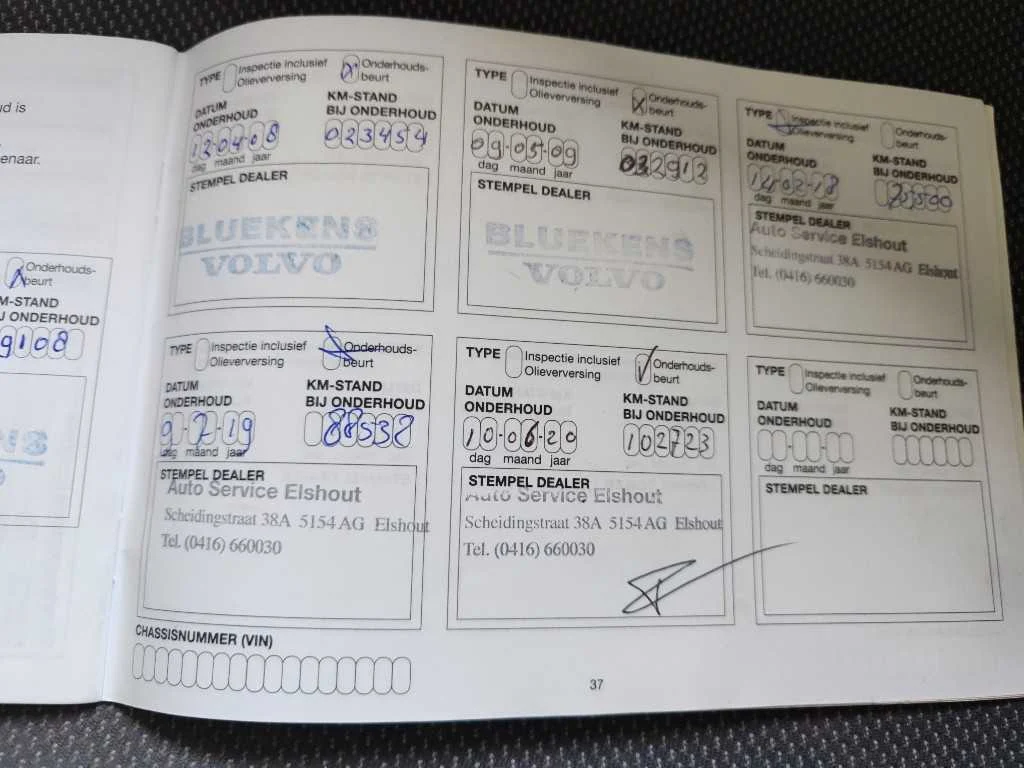 d is
enaar.
Onderhouds-
beurt
M-STAND
J ONDERHOUD
9108
TYPE Inspectie inclusief Olieverversing Onderhouds-beurt
DATUM ONDERHOUD
KM-STAND BIJ ONDERHOUD
120408
023454
dag maand jaar
STEMPEL DEALER
BLUEKENS
VOLVO
TYPE Inspectie inclusief Olieverversing Onderhouds-beurt
DATUM ONDERHOUD
KM-STAND BIJ ONDERHOUD
09-05-09
032912
dag maand jaar
STEMPEL DEALER
BLUEKENS
VOLVO
TYPE Inspectie inclusief Olieverversing Onderhouds-beurt
DATUM ONDERHOUD
KM-STAND BIJ ONDERHOUD
14-02-18
dag maand jaar
STEMPEL DEALER
Auto Service Elshout
Scheidingstraat 38A 5154 AG Elshout
Tel. (0416) 660030
TYPE Inspectie inclusief Olieverversing Onderhouds-beurt
DATUM ONDERHOUD
KM-STAND BIJ ONDERHOUD
9-7-19
88532
dag maand jaar
STEMPEL DEALER
Auto Service Elshout
Scheidingstraat 38A 5154 AG Elshout
Tel. (0416) 660030
TYPE Inspectie inclusief Olieverversing Onderhouds-beurt
DATUM ONDERHOUD
KM-STAND BIJ ONDERHOUD
10-06-20
102723
dag maand jaar
STEMPEL DEALER
Auto Service Elshout
Scheidingstraat 38A 5154 AG Elshout
Tel. (0416) 660030
TYPE Inspectie inclusief Olieverversing Onderhouds-beurt
DATUM ONDERHOUD
KM-STAND BIJ ONDERHOUD
dag maand jaar
STEMPEL DEALER
CHASSISNUMMER (VIN)
37